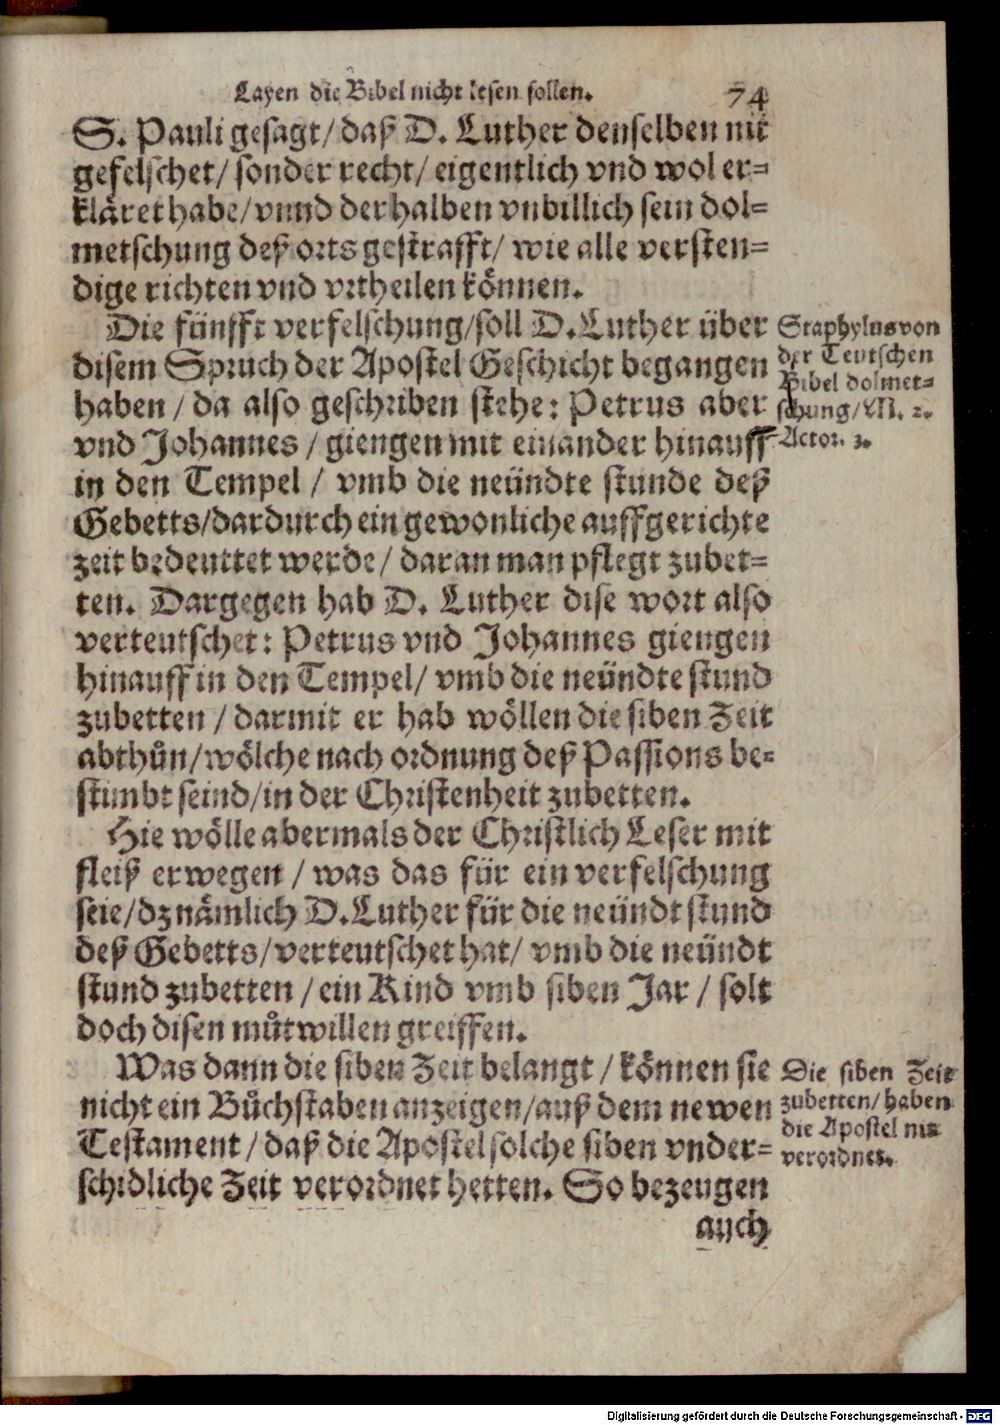 Layen die Bibel nicht lesen sollen. 74
S. Pauli gesagt/ daß D. Luther denselben nit
gefelschet/ sonder recht/ eigentlich vnd wol er=
kläret habe/ vnnd derhalben vnbillich sein dol=
metschung deß orts gestrafft/ wie alle versten=
dige richten vnd vrtheilen können.
Die fünfft verfelschung/ soll D. Luther über
disem Spruch der Apostel Geschicht begangen
haben / da also geschriben stehe: Petrus aber
vnd Johannes / giengen mit einander hinauff
in den Tempel / vmb die neündte stunde deß
Gebetts/ dardurch ein gewonliche auffgerichte
zeit bedeuttet werde/ daran man pflegt zubet=
ten. Dargegen hab D. Luther dise wort also
verteutschet: Petrus vnd Johannes giengen
hinauff in den Tempel/ vmb die neündte stund
zubetten / darmit er hab wöllen die siben Zeit
abthůn/ wölche nach ordnung deß Passions be=
stimbt seind/ in der Christenheit zubetten.
Hie wölle abermals der Christlich Leser mit
fleiß erwegen / was das für ein verfelschung
seie/ dz nämlich D. Luther für die neündt stund
deß Gebetts/ verteutschet hat/ vmb die neündt
stund zubetten / ein Kind vmb siben Jar / solt
doch disen můtwillen greiffen.
Was dann die siben Zeit belangt / können sie
nicht ein Bůchstaben anzeigen/ auß dem newen
Testament / daß die Apostel solche siben vnder=
schidliche Zeit verordnet hetten. So bezeugen
auch
Staphylus von
der Teutschen
Bibel dolmet=
schung/ M. 2.
Actor. 3.
Die siben Zeit
zubetten/ haben
die Apostel nit
verordnet.
Digitalisierung gefördert durch die Deutsche Forschungsgemeinschaft - DFG